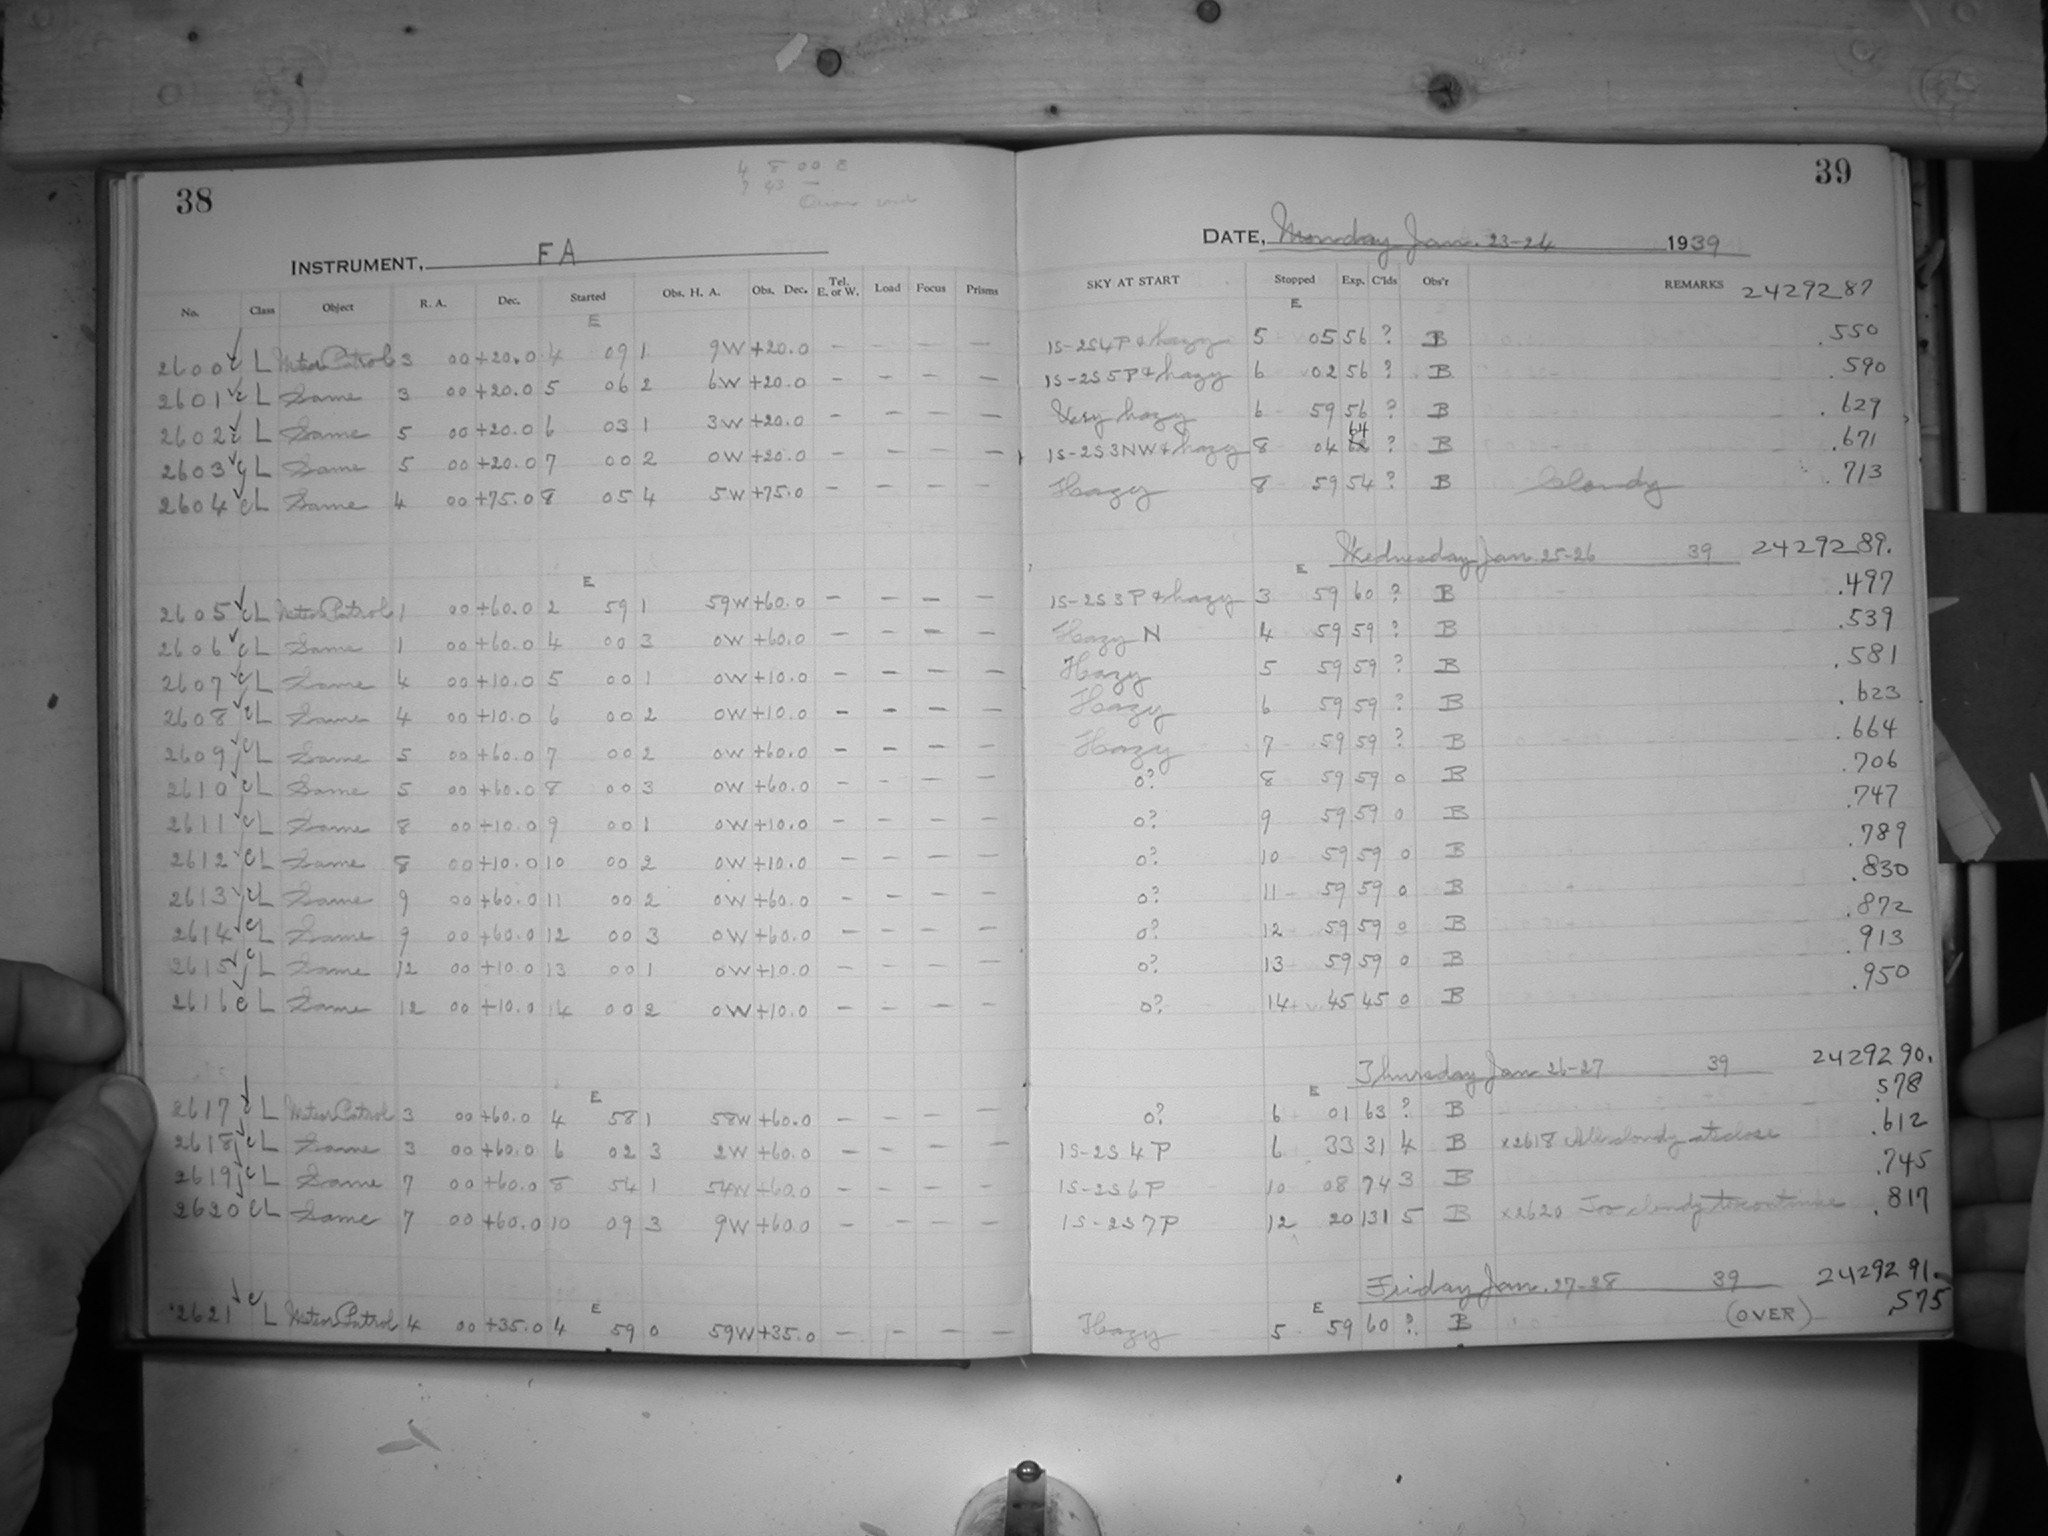 38
4 8 00 E
INSTRUMENT, FA
No. Class Object R. A. Dec. Started Obs. H. A. Obs. Dec. Tel. E. or W. Load Focus Prisms
E
2600 c L Meteor Patrol 3 00 +20.0 4 09 1 9W +20.0 - - - -
2601 c L Same 3 00 +20.0 5 06 2 6W +20.0 - - - -
2602 c L Same 5 00 +20.0 6 03 1 3W +20.0 - - - -
2603 c L Same 5 00 +20.0 7 00 2 0W +20.0 - - - -
2604 c L Same 4 00 +75.0 8 05 4 5W +75.0 - - - -
E
2605 c L Meteor Patrol 1 00 +60.0 2 59 1 59W +60.0 - - - -
2606 c L Same 1 00 +60.0 4 00 3 0W +60.0 - - - -
2607 c L Same 4 00 +10.0 5 00 1 0W +10.0 - - - -
2608 c L Same 4 00 +10.0 6 00 2 0W +10.0 - - - -
2609 c L Same 5 00 +60.0 7 00 2 0W +60.0 - - - -
2610 c L Same 5 00 +60.0 8 00 3 0W +60.0 - - - -
2611 c L Same 8 00 +10.0 9 00 1 0W +10.0 - - - -
2612 c L Same 8 00 +10.0 10 00 2 0W +10.0 - - - -
2613 c L Same 9 00 +60.0 11 00 2 0W +60.0 - - - -
2614 c L Same 9 00 +60.0 12 00 3 0W +60.0 - - - -
2615 c L Same 12 00 +10.0 13 00 1 0W +10.0 - - - -
2616 c L Same 12 00 +10.0 14 00 2 0W +10.0 - - - -
E
2617 c L Meteor Patrol 3 00 +60.0 4 58 1 58W +60.0 - - - -
2618 c L Same 3 00 +60.0 6 02 3 2W +60.0 - - - -
2619 c L Same 7 00 +60.0 8 54 1 54W +60.0 - - - -
2620 c L Same 7 00 +60.0 10 09 3 9W +60.0 - - - -
E
2621 c L Meteor Patrol 4 00 +35.0 4 59 0 59W +35.0 - - - -
39
DATE, Monday Jan. 23-24 1939
SKY AT START Stopped Exp. C'lds Obs'r REMARKS 2429287
E
1S-2S4P + hazy 5 05 56 ? B .550
1S-2S5P + hazy 6 02 56 ? B .590
Very hazy 6 59 56 ? B .629
1S-2S3NW + hazy 8 04 64 ? B .671
Hazy 8 59 54 ? B Cloudy .713
Wednesday Jan. 25-26 39 2429289.
E
1S-2S3P + hazy 3 59 60 ? B .497
Hazy N 4 59 59 ? B .539
Hazy 5 59 59 ? B .581
Hazy 6 59 59 ? B .623
Hazy 7 59 59 ? B .664
0? 8 59 59 0 B .706
0? 9 59 59 0 B .747
0? 10 59 59 0 B .789
0? 11 59 59 0 B .830
0? 12 59 59 0 B .872
0? 13 59 59 0 B .913
0? 14 45 45 0 B .950
Thursday Jan. 26-27 39 2429290.
E
0? 6 01 63 ? B .578
1S-2S4P 6 33 31 4 B x2618 All cloudy at close .612
1S-2S6P 10 08 74 3 B .745
1S-2S7P 12 20 131 5 B x2620 Too cloudy to continue .817
Friday Jan. 27-28 39 2429291.
E
Hazy 5 59 60 ? B (OVER) .575